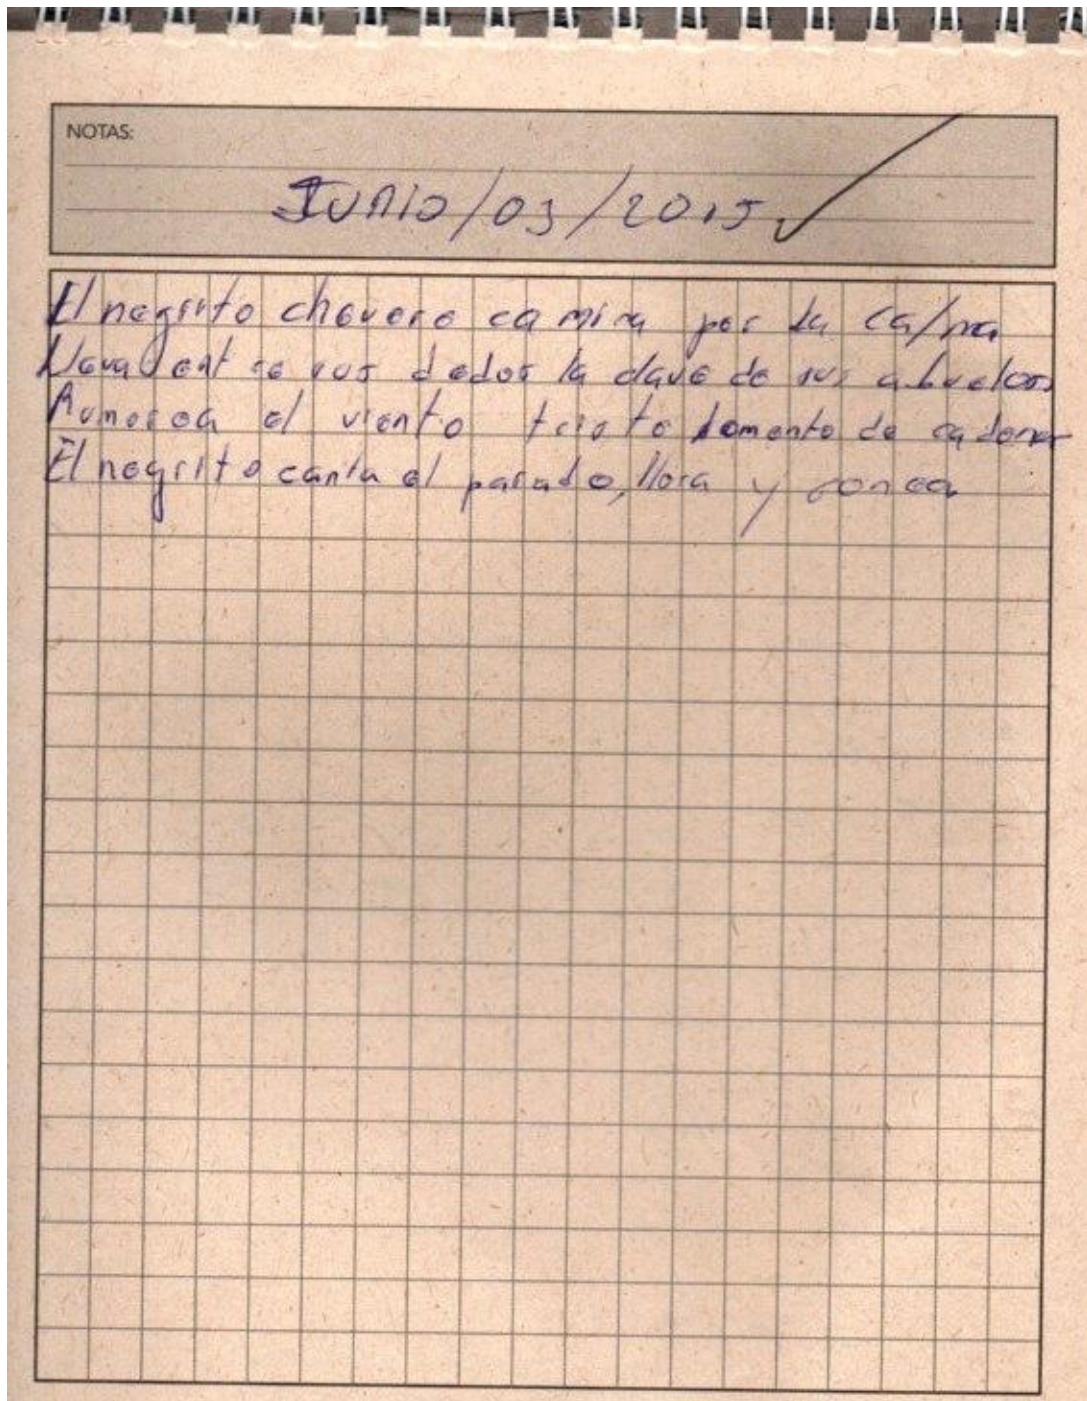 NOTAS:
Junio/03/2015
El negrito chevere camina por la calma
Lleva entre sus dedos la clave de sus abuelos
Rumorea el viento triste lamento de cadenas
El negrito canta el pasado, llora y